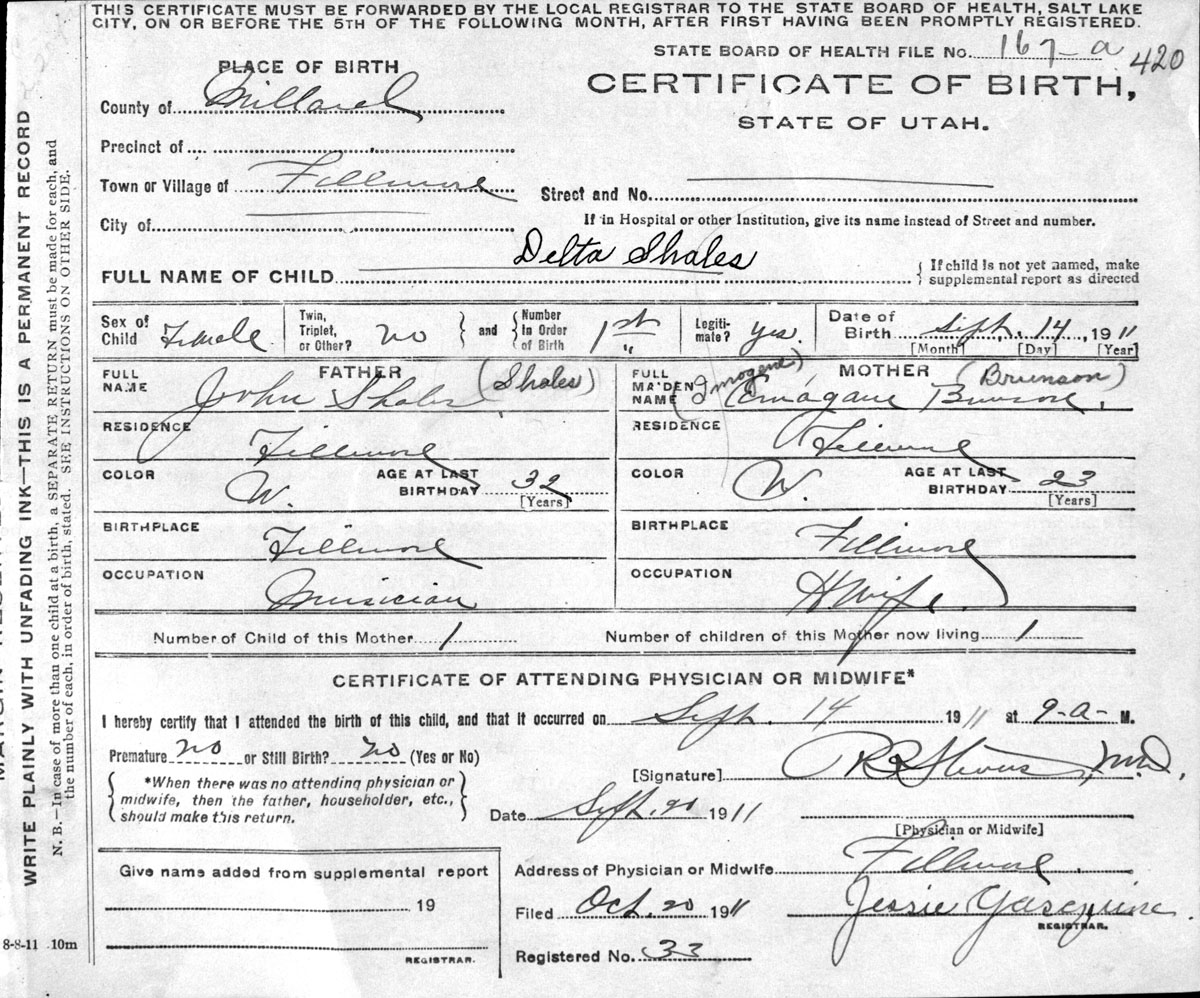 THIS CERTIFICATE MUST BE FORWARDED BY THE LOCAL REGISTRAR TO THE STATE BOARD OF HEALTH, SALT LAKE
CITY, ON OR BEFORE THE 5TH OF THE FOLLOWING MONTH, AFTER FIRST HAVING BEEN PROMPTLY REGISTERED.
STATE BOARD OF HEALTH FILE No. 167-a 420
PLACE OF BIRTH
CERTIFICATE OF BIRTH,
STATE OF UTAH.
County of Millard
Precinct of
Town or Village of Fillmore
Street and No.
City of
If in Hospital or other Institution, give its name instead of Street and number.
FULL NAME OF CHILD Delta Shales
If child is not yet named, make
supplemental report as directed
Sex of Child Female
Twin, Triplet, or Other? no
and Number in Order of Birth 1st
Legiti-mate? yes.
Date of Birth Sept. 14, 1911
[Month] [Day] [Year]
FATHER
FULL NAME John Shales (Shales)
MOTHER
FULL MAIDEN NAME (Imogene) Emagane Brunson (Brunson)
RESIDENCE Fillmore
RESIDENCE Fillmore
COLOR W. AGE AT LAST BIRTHDAY 32 [Years]
COLOR W. AGE AT LAST BIRTHDAY 23 [Years]
BIRTHPLACE Fillmore
BIRTHPLACE Fillmore
OCCUPATION Musician
OCCUPATION H Wife.
Number of Child of this Mother 1
Number of children of this Mother now living 1
CERTIFICATE OF ATTENDING PHYSICIAN OR MIDWIFE*
I hereby certify that I attended the birth of this child, and that it occurred on Sept. 14 1911 at 9-a- M.
Premature no or Still Birth? no (Yes or No)
*When there was no attending physician or
midwife, then the father, householder, etc.,
should make this return.
[Signature] Stevens, M.D.
Date Sept. 20 1911
[Physician or Midwife]
Give name added from supplemental report
19
REGISTRAR.
Address of Physician or Midwife Fillmore
Filed Oct. 20 1911 Jessie
REGISTRAR.
Registered No. 33
8-8-11 10m
WRITE PLAINLY WITH UNFADING INK—THIS IS A PERMANENT RECORD
N. B.—In case of more than one child at a birth, a SEPARATE RETURN must be made for each, and
the number of each, in order of birth, stated. SEE INSTRUCTIONS ON OTHER SIDE.